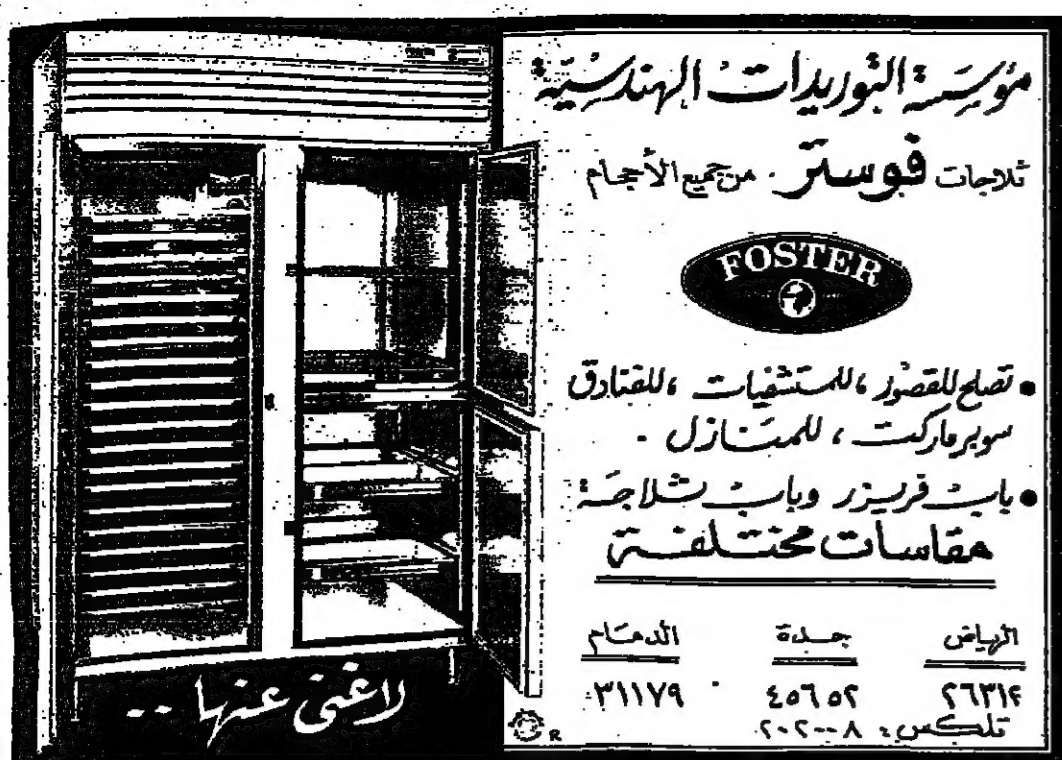 مؤسسة التوريدات الهندسية
ثلاجات فوستر. من جميع الأحجام
FOSTER
• تصلح للقصور، للمستشفيات، للفنادق
سوبرماركت، للمنازل.
• باب فريزر وباب ثلاجة
مقاسات مختلفة
الرياض جدة الدمام
٢٦٣١٢ ٤٥٦٥٢ ٣١١٧٩
تلكس: ٢٠٢٠٠٨
لاغنى عنها ..
R